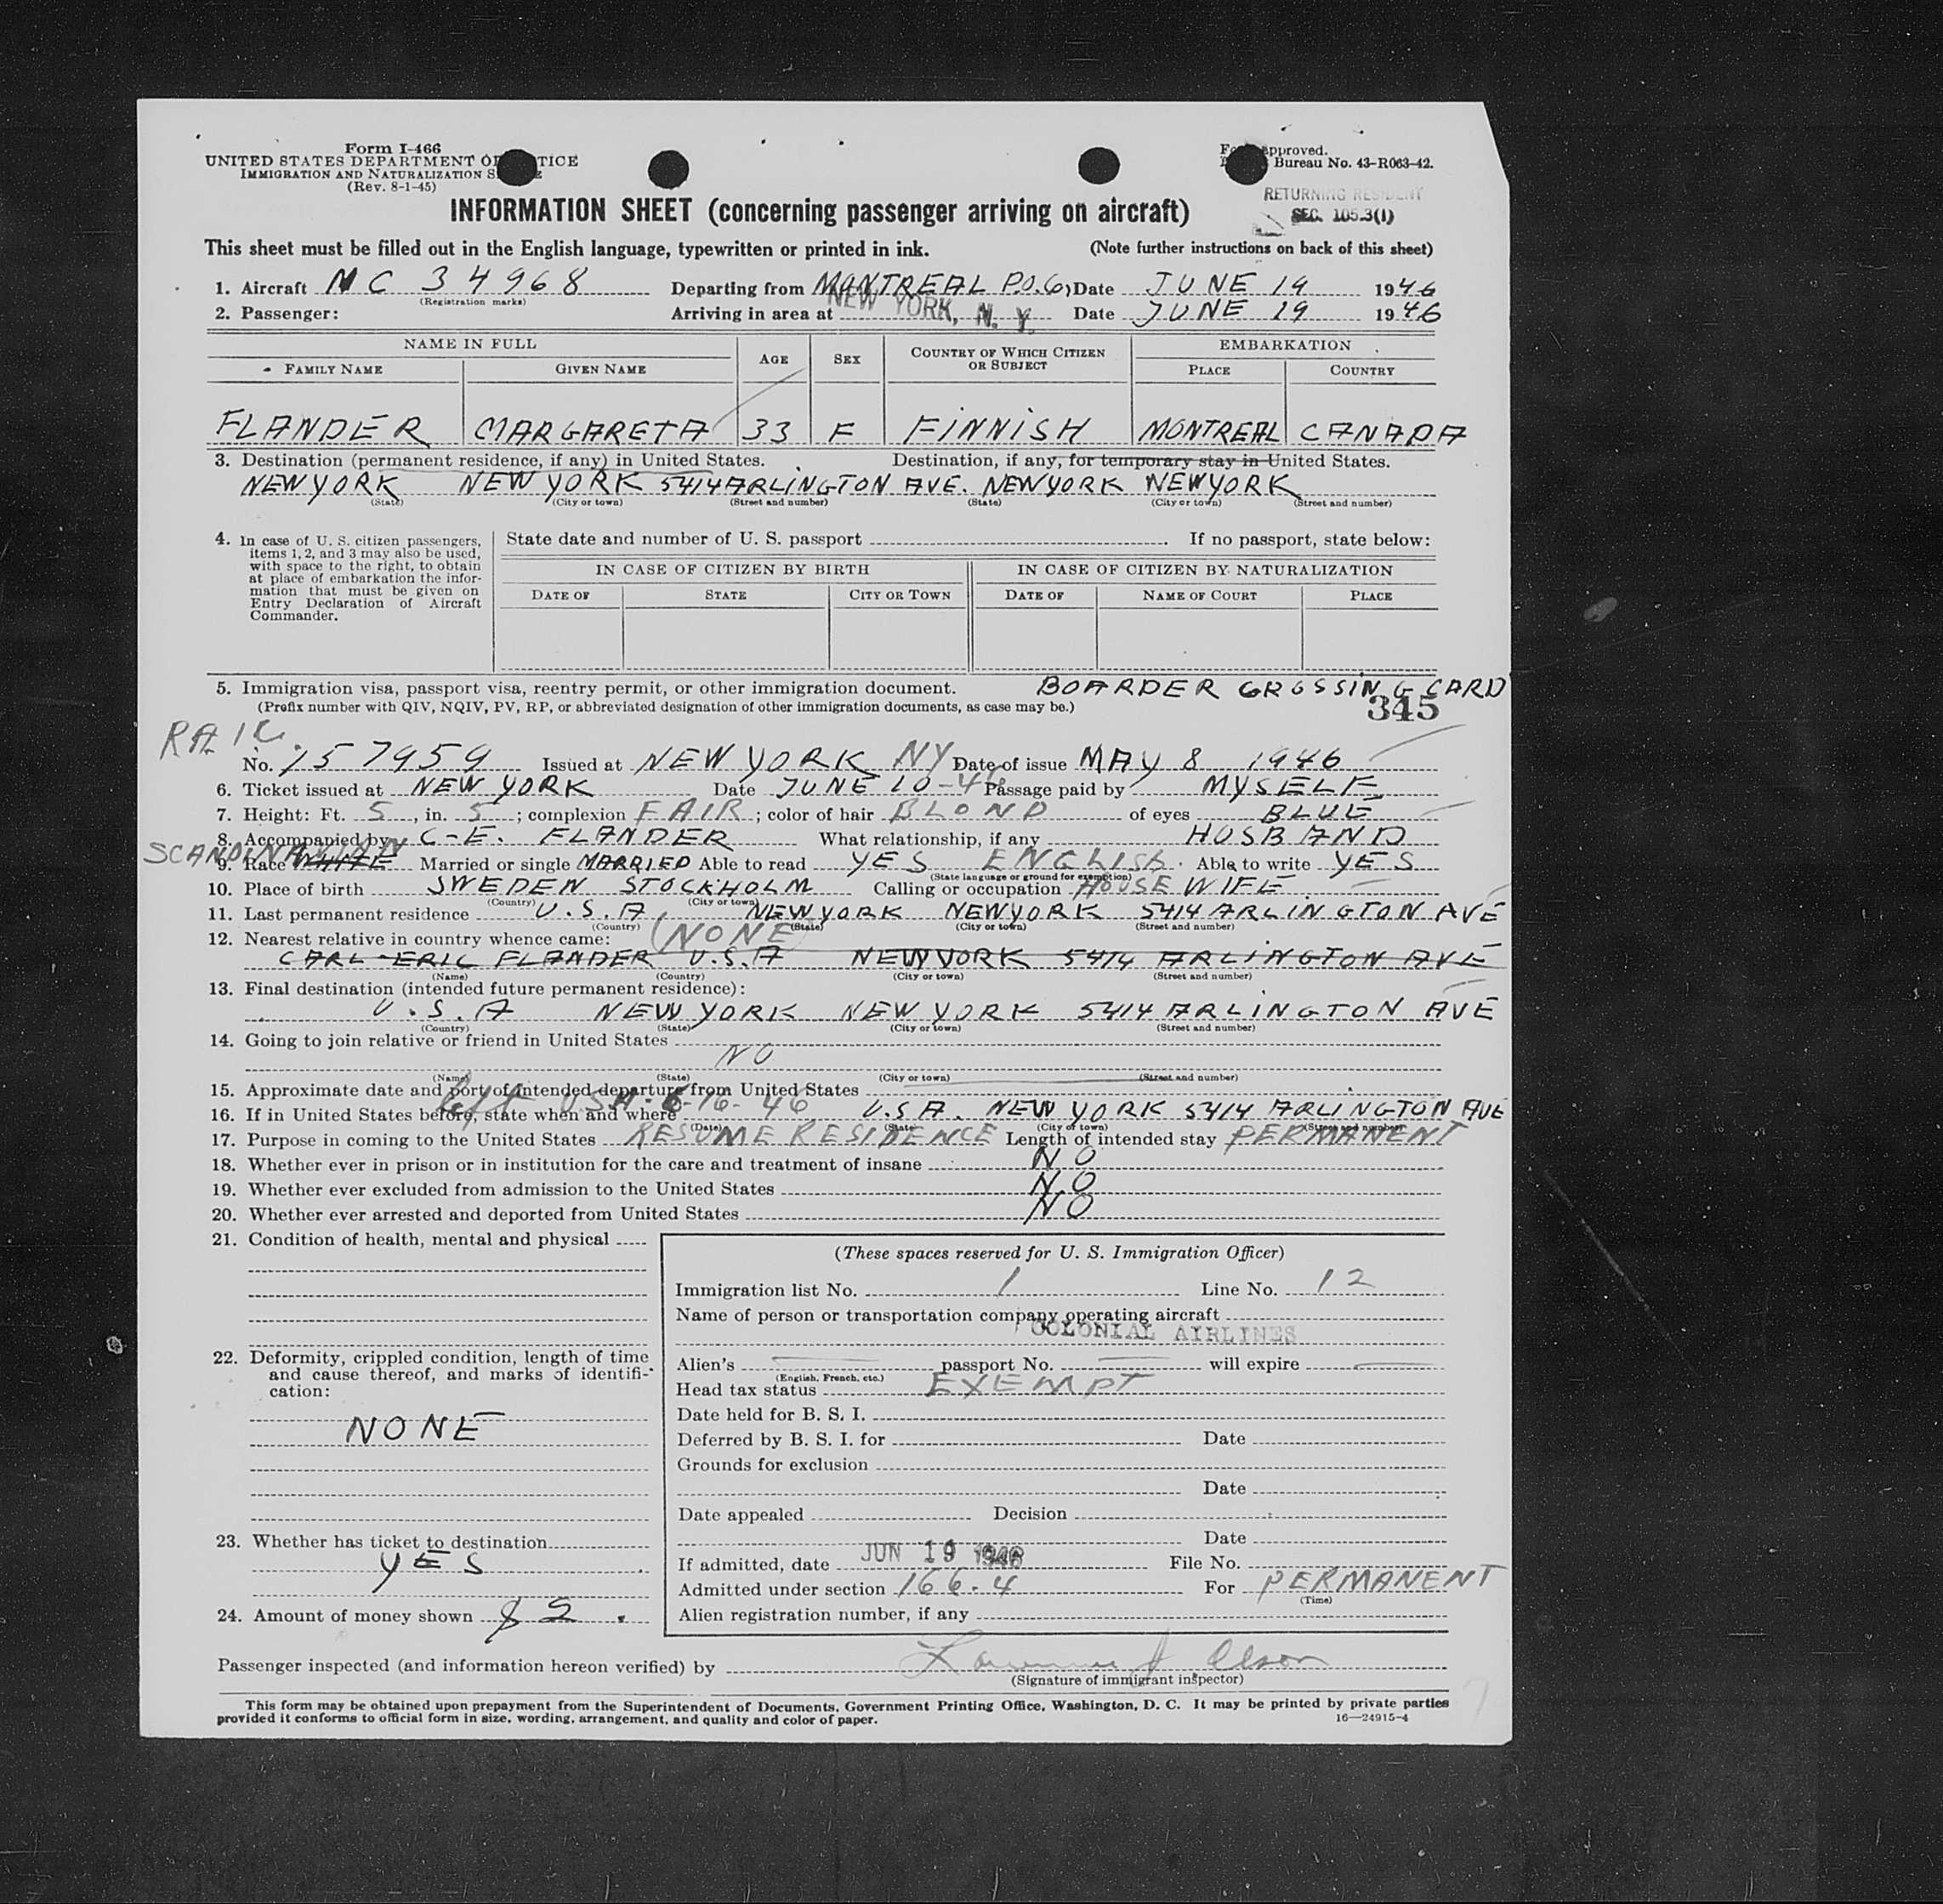 Form I-466
UNITED STATES DEPARTMENT OF JUSTICE
IMMIGRATION AND NATURALIZATION
(Rev. 8-1-45)
approved.
Bureau No. 43-R063-42.
RETURNING RESIDENT
SEC. 105.3(1)
INFORMATION SHEET (concerning passenger arriving on aircraft)
This sheet must be filled out in the English language, typewritten or printed in ink. (Note further instructions on back of this sheet)
1. Aircraft NC 34968 Departing from MONTREAL P.Q. Date JUNE 19 1946
(Registration marks)
2. Passenger: Arriving in area at NEW YORK, N. Y. Date JUNE 19 1946
NAME IN FULL AGE SEX COUNTRY OF WHICH CITIZEN OR SUBJECT EMBARKATION
FAMILY NAME GIVEN NAME PLACE COUNTRY
FLANDER MARGARETA 33 F FINNISH MONTREAL CANADA
3. Destination (permanent residence, if any) in United States. Destination, if any, for temporary stay in United States.
NEW YORK NEW YORK 5414 ARLINGTON AVE. NEWYORK NEWYORK
(State) (City or town) (Street and number) (State) (City or town) (Street and number)
4. In case of U. S. citizen passengers, items 1, 2, and 3 may also be used, with space to the right, to obtain at place of embarkation the information that must be given on Entry Declaration of Aircraft Commander.
State date and number of U. S. passport If no passport, state below:
IN CASE OF CITIZEN BY BIRTH IN CASE OF CITIZEN BY NATURALIZATION
DATE OF STATE CITY OR TOWN DATE OF NAME OF COURT PLACE
5. Immigration visa, passport visa, reentry permit, or other immigration document. BOARDER CROSSING CARD
(Prefix number with QIV, NQIV, PV, RP, or abbreviated designation of other immigration documents, as case may be.) 345
No. 157959 Issued at NEW YORK NY Date of issue MAY 8 1946
6. Ticket issued at NEW YORK Date JUNE 10-46 Passage paid by MYSELF
7. Height: Ft. 5, in. 5; complexion FAIR; color of hair BLOND of eyes BLUE
8. Accompanied by C-E. FLANDER What relationship, if any HUSBAND
SCANDINAVIAN
9. Race WHITE Married or single MARRIED Able to read YES ENGLISH. Able to write YES
(State language or ground for exemption)
10. Place of birth SWEDEN STOCKHOLM Calling or occupation HOUSE WIFE
(Country) (City or town)
11. Last permanent residence U.S.A NEWYORK NEWYORK 5414 ARLINGTON AVE
(Country) (State) (City or town) (Street and number)
12. Nearest relative in country whence came: (NONE)
CARL-ERIC FLANDER U.S.A NEWYORK 5414 ARLINGTON AVE
(Name) (Country) (City or town) (Street and number)
13. Final destination (intended future permanent residence):
U.S.A NEW YORK NEW YORK 5414 ARLINGTON AVE
(Country) (State) (City or town) (Street and number)
14. Going to join relative or friend in United States
NO
(Name) (State) (City or town) (Street and number)
15. Approximate date and port of intended departure from United States
left U.S.A. 6-16-46
16. If in United States before, state when and where U.S.A. NEW YORK 5414 ARLINGTON AVE
(Date) (State) (City or town) (Street and number)
17. Purpose in coming to the United States RESUME RESIDENCE Length of intended stay PERMANENT
18. Whether ever in prison or in institution for the care and treatment of insane NO
19. Whether ever excluded from admission to the United States NO
20. Whether ever arrested and deported from United States NO
21. Condition of health, mental and physical
22. Deformity, crippled condition, length of time and cause thereof, and marks of identification:
NONE
23. Whether has ticket to destination
YES
24. Amount of money shown
(These spaces reserved for U. S. Immigration Officer)
Immigration list No. 1 Line No. 12
Name of person or transportation company operating aircraft
COLONIAL AIRLINES
Alien's passport No. will expire
(English, French, etc.)
Head tax status EXEMPT
Date held for B. S. I.
Deferred by B. S. I. for Date
Grounds for exclusion
Date
Date appealed Decision
Date
If admitted, date JUN 19 1946 File No.
Admitted under section 166.4 For PERMANENT
(Time)
Alien registration number, if any
Passenger inspected (and information hereon verified) by Lawrence J Olson
(Signature of immigrant inspector)
This form may be obtained upon prepayment from the Superintendent of Documents, Government Printing Office, Washington, D. C. It may be printed by private parties
provided it conforms to official form in size, wording, arrangement, and quality and color of paper. 16—24915-4